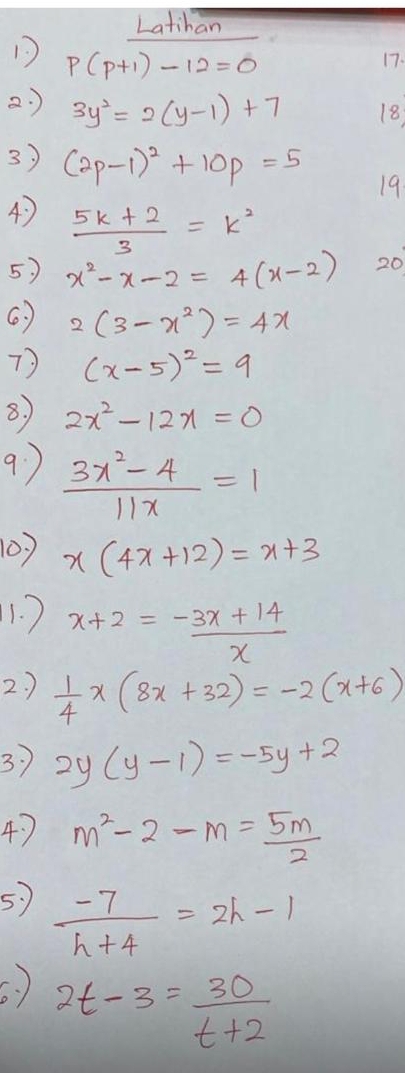 Latihan
1.) P(p+1) - 12 = 0
17.
2.) 3y² = 2(y-1) + 7
18)
3.) (2p-1)² + 10p = 5
19.
4.) (5k + 2)/3 = k²
5.) x² - x - 2 = 4(x-2)
20)
6.) 2(3 - x²) = 4x
7) (x-5)² = 9
8.) 2x² - 12x = 0
9.) (3x² - 4)/11x = 1
10.) x(4x + 12) = x + 3
11.) x + 2 = (-3x + 14)/x
2.) 1/4 x(8x + 32) = -2(x+6)
3.) 2y(y-1) = -5y + 2
4.) m² - 2 - m = 5m/2
5.) -7/(h+4) = 2h - 1
6.) 2t - 3 = 30/(t+2)